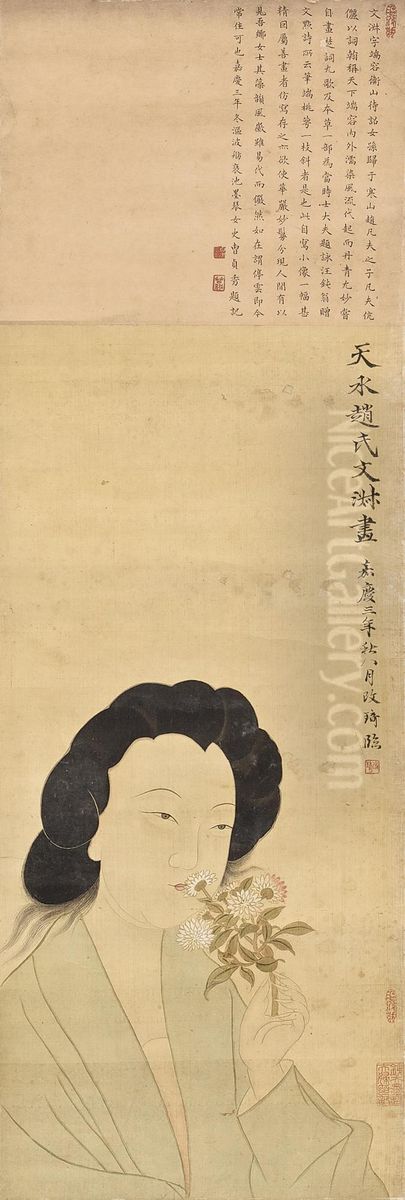 文淑字端容衡山待詔女孫歸于寒山趙凡夫之子凡夫伉
儷以詞翰稱天下端容內外濡染風流代起而丹青尤妙嘗
自畫楚詞九歌及本草一部為當時士大夫題詠汪鈍翁贈
文點詩所云筆端桃萼一枝斜者是也此自寫小像一幅甚
精因屬善畫者仿寫存之亦欲使華嚴妙鬘分現人間有以
見吾鄉女士其藻韻風徽雖易代而儼然如在謂停雲即今
常住可也嘉慶三年冬漚波舫裹池墨琴女史曹貞秀題記
天水趙氏文淑畫
嘉慶三年秋八月改琦臨
NiceArtGallery.com